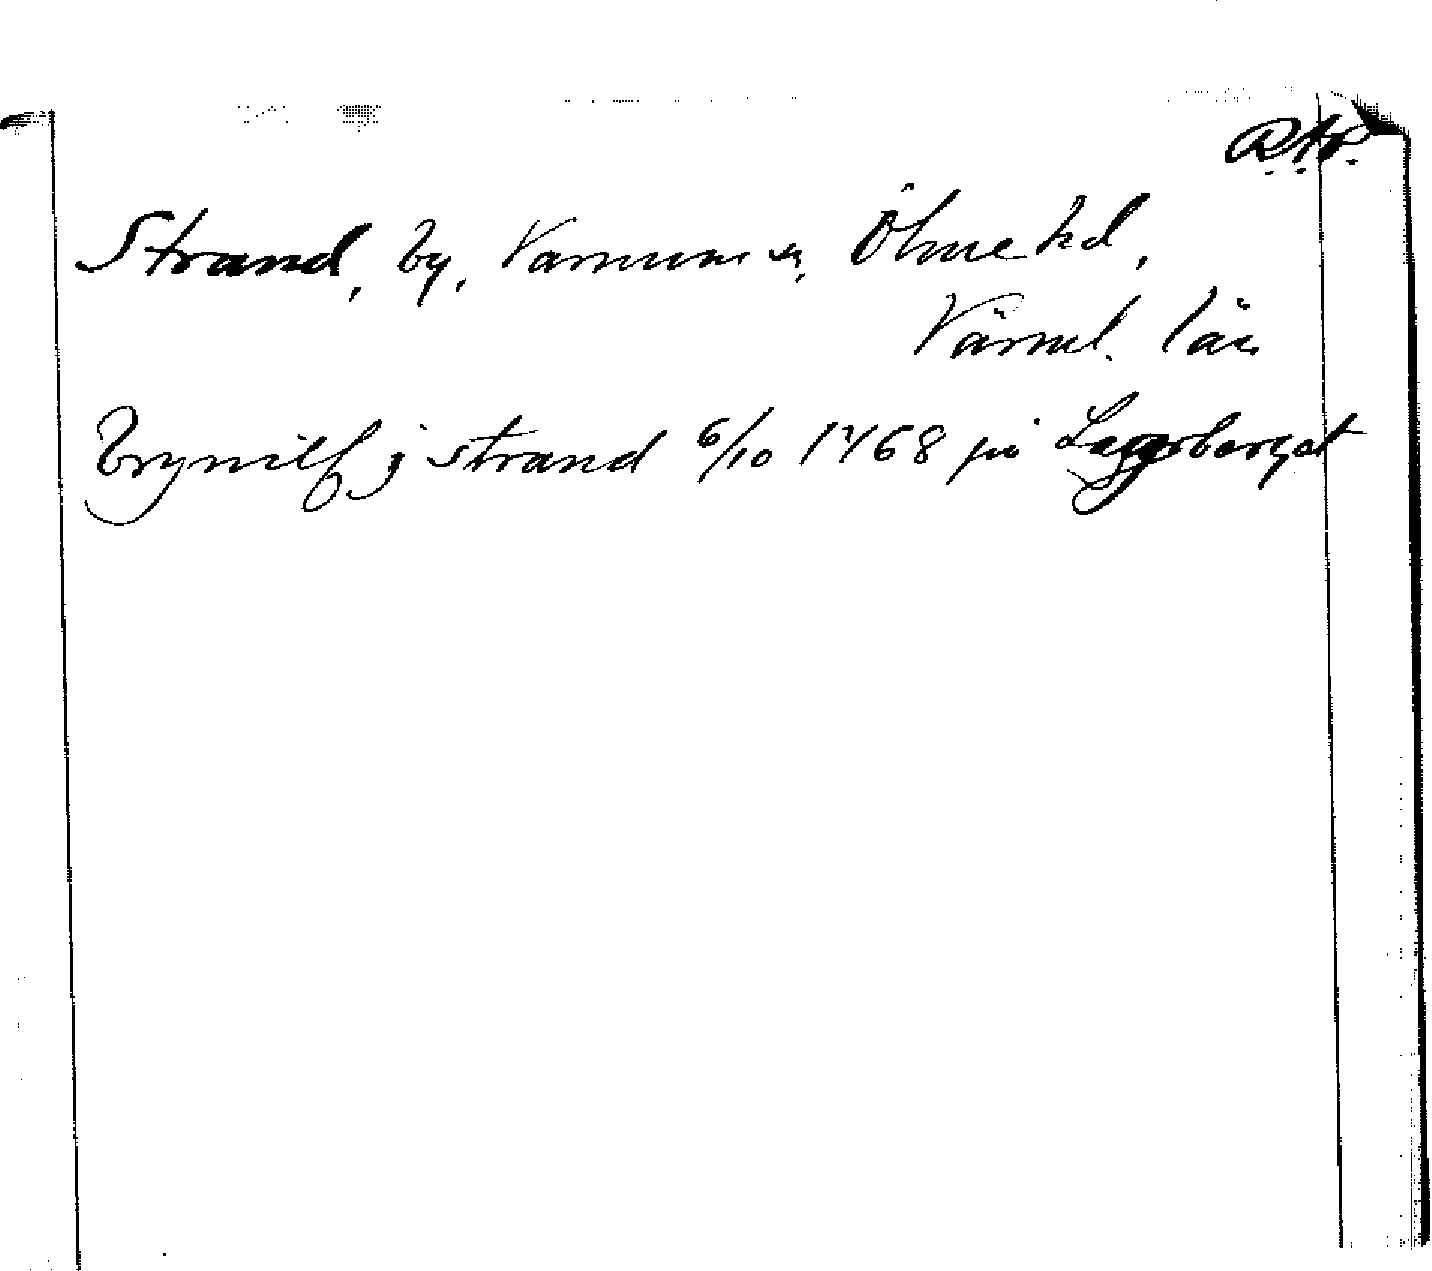 R.A.P.
Strand, by, Varnums sn, Ölme hd,
Värml. län
Brynilf j strand 6/10 1468 på Laggrberget